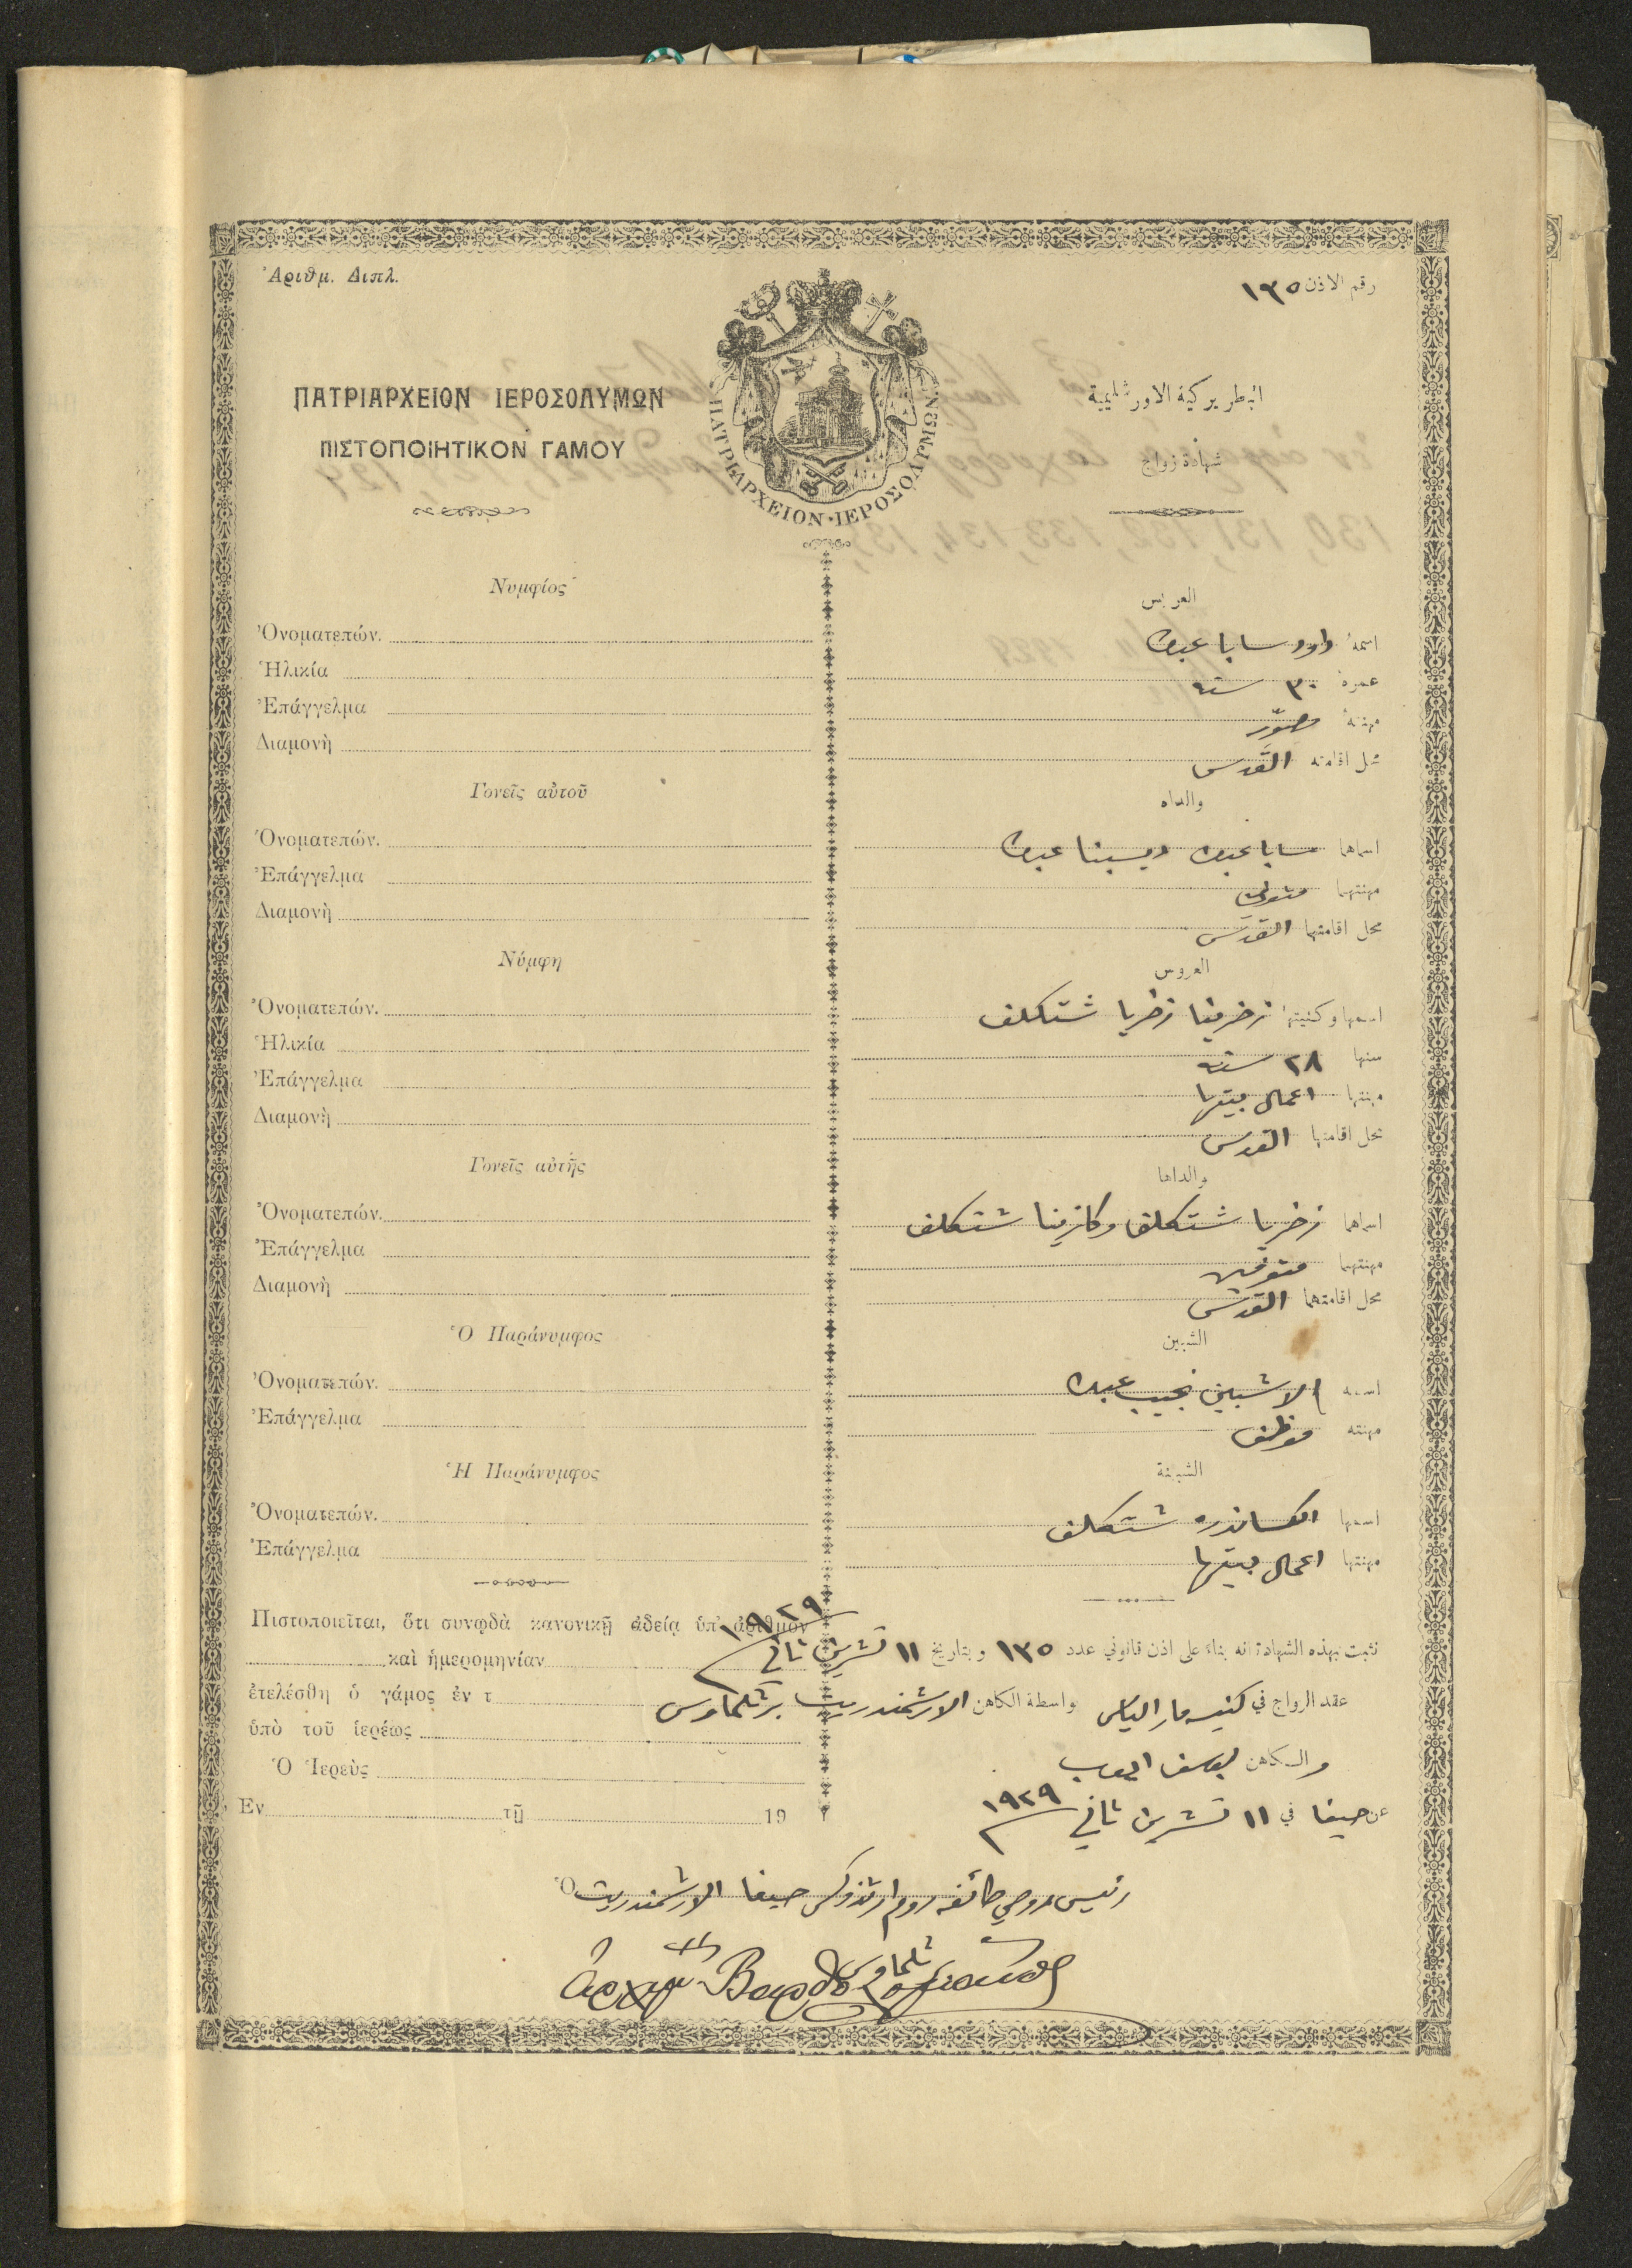 Ἀριθμ. Διπλ.
رقم الاذن ١٣٥
ΠΑΤΡΙΑΡΧΕΙΟΝ ΙΕΡΟΣΟΛΥΜΩΝ
ΠΙΣΤΟΠΟΙΗΤΙΚΟΝ ΓΑΜΟΥ
ΠΑΤΡΙΑΡΧΕΙΟΝ·ΙΕΡΟΣΟΛΥΜΩΝ
البطريركية الاورشليمية
شهادة زواج
Νυμφίος
Ὀνοματεπών.
Ἡλικία
Ἐπάγγελμα
Διαμονὴ
Γονεῖς αὐτοῦ
Ὀνοματεπών.
Ἐπάγγελμα
Διαμονὴ
Νύμφη
Ὀνοματεπών.
Ἡλικία
Ἐπάγγελμα
Διαμονὴ
Γονεῖς αὐτῆς
Ὀνοματεπών.
Ἐπάγγελμα
Διαμονὴ
Ὁ Παράνυμφος
Ὀνοματεπών.
Ἐπάγγελμα
Ἡ Παράνυμφος
Ὀνοματεπών.
Ἐπάγγελμα
Πιστοποιεῖται, ὅτι συνῳδὰ κανονικῇ ἀδείᾳ ὑπ' ἀριθμὸν
καὶ ἡμερομηνίαν
ἐτελέσθη ὁ γάμος ἐν τ
ὑπὸ τοῦ ἱερέως
Ὁ Ἱερεὺς
Ἐν τῇ 19
العريس
اسمهُ داود سابا عبده
عمرهُ ٣٠ سنه
مهنتهُ مصوّر
محل اقامته القدس
والداه
اسماهما سابا عبده و عبده
مهنتهما
محل اقامتهما القدس
العروس
اسمها وكنيتها زخريا شتكلف
سنها ٢٨ سنه
مهنتها اعمال بيتها
محل اقامتها القدس
والداها
اسماهما زخريا شتكلف وكاترينا شتكلف
مهنتهما متوفيين
محل اقامتهما القدس
الشبين
اسمه الاشبين نجيب عبده
مهنته موظف
الشبينة
اسمها الكساندره شتكلف
مهنتها اعمال بيتها
تثبت بهذه الشهادة انه بناء على اذن قانوني عدد ١٣٥ وبتاريخ ١١ تشرين ثاني ١٩٢٩
عقد الزواج في كنيسة مار الياس بواسطة الكاهن الارشمندريت برثلماوس
والكاهن يوسف
عن حيفا في ١١ تشرين ثاني ١٩٢٩
Ὁ رئيس روحي طائفة روم ارثوذكس حيفا الارشمندريت
Ἀρχιμ. Βαρθολομαῖος